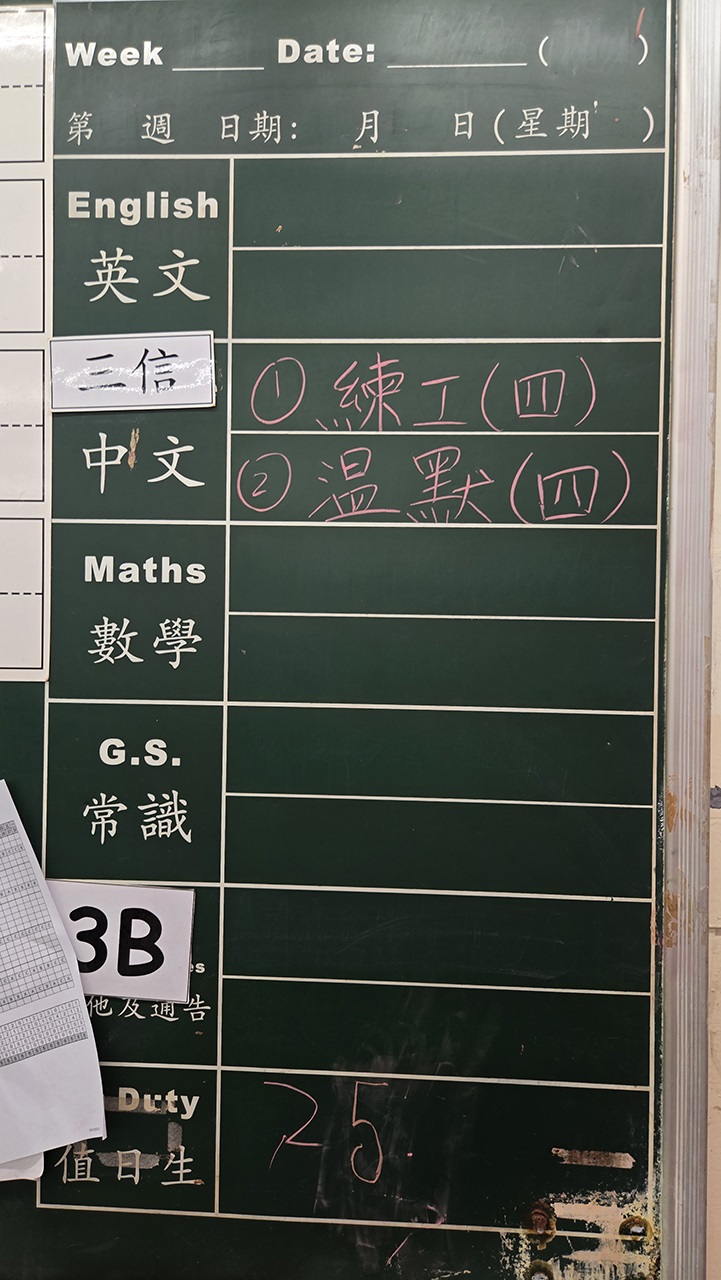 Week ____ Date: ______ ( )
第 週 日期: 月 日(星期 )
English
英文
三信
① 練工(四)
中文
② 温默(四)
Maths
數學
G.S.
常識
3B
es
他及通告
Duty
25.
值日生